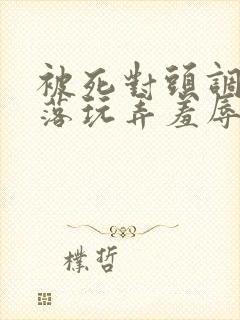 被死對頭調
落玩弄羞辱
樸哲